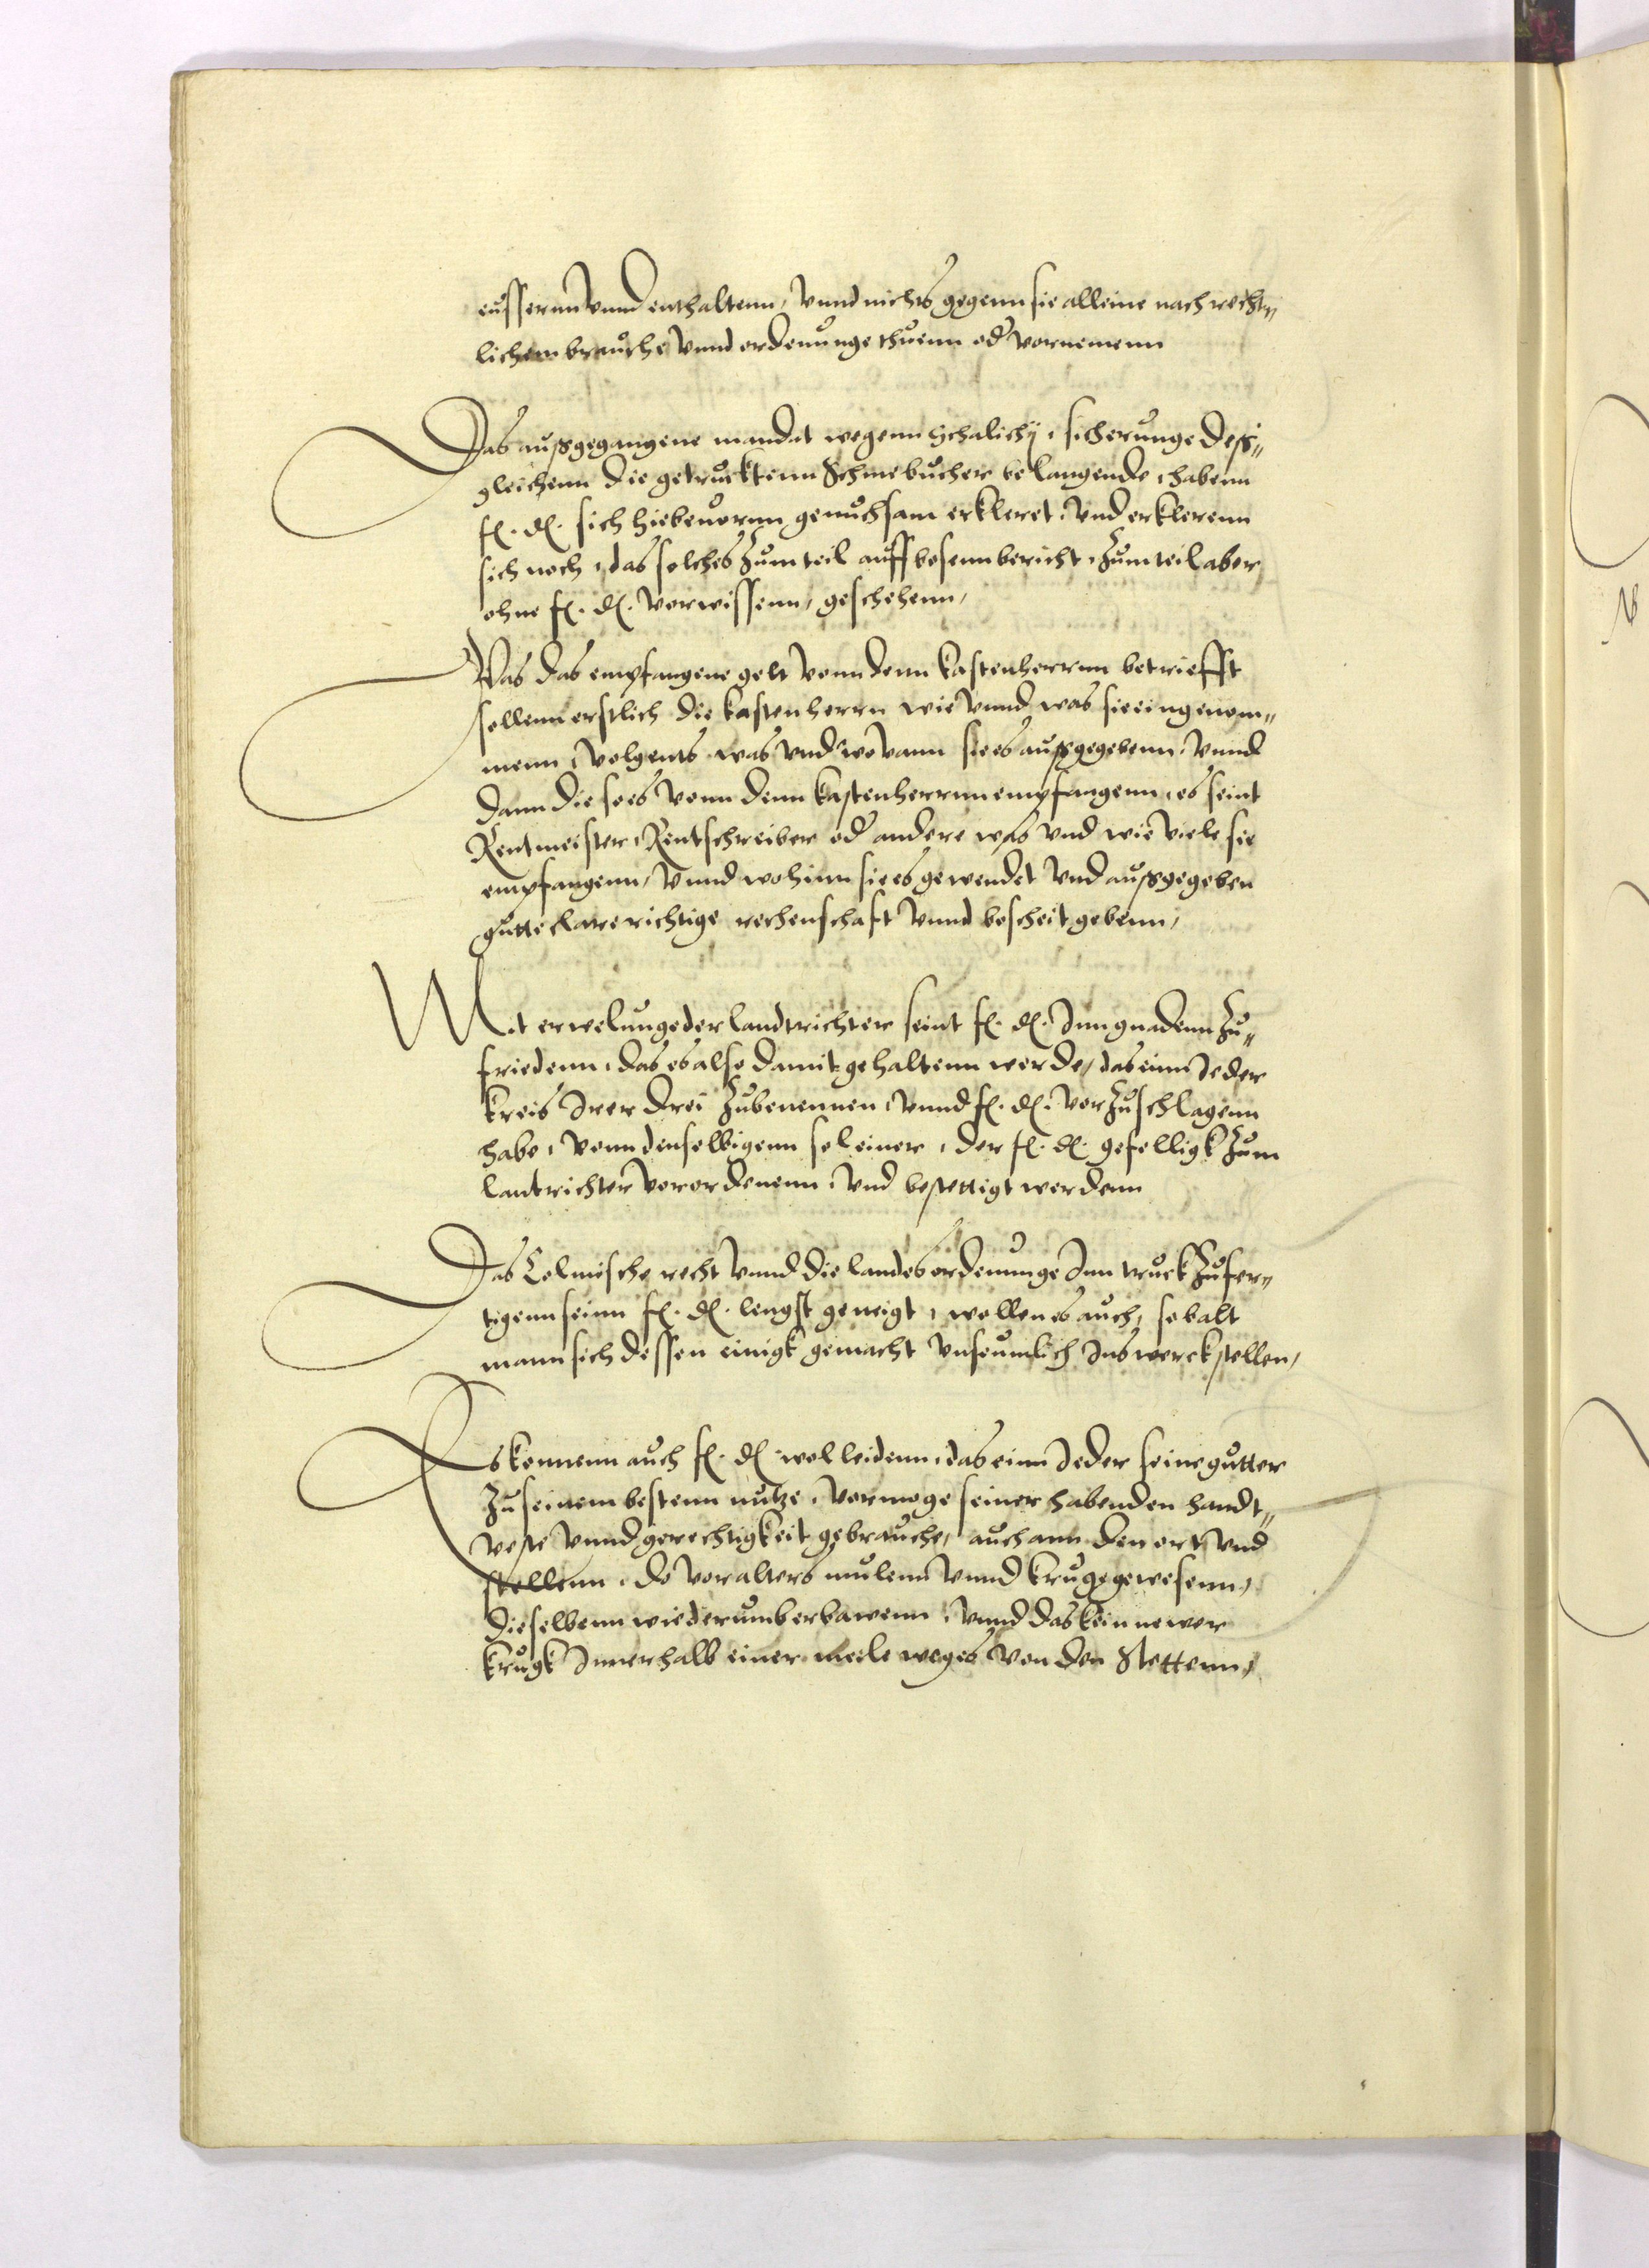 eusserun vnnd enthaltenn, vnnd nichts gegenn sie alleine nach recht„
lichem brauche vnnd ordenunge thuenn od vornemenn
Das außgegangene mandat wegenn Schalichij, sicherunge deß„
gleichenn die getrucktenn Schmebucher belangende, habenn
f. d. sich hiebeuornn genuchsam erkleret, vnd erklerenn
sich noch, das solches zum teil auff bosenn bericht, zum teil aber
ohne f. d. vorwissenn, geschehenn,
Was das empfangene gelt vonn denn kastenherrnn betriefft
sollenn erstlich die kastenherrn wie vnnd was sie eingenom„
menn, volgents was vnd wovann sie es außgegebenn, vnnd
dann die so es vonn denn kastenherrnn empfangenn, es seint
Rentmeister, Rentschreiber od andere was vnd wie viele sie
empfangenn, vnnd wohinn sie es gewendet vnd außgegeben
gutte klare richtige rechenschaft vnnd bescheit gebenn,
Mit erwelunge der landtrichter seint f. d. Inn gnadenn zu„
friedenn, das es also damit gehaltenn werde, das einn Jeder
kreis Irer drei zubenennen, vnnd f. d. vorzuschlagenn
habe, vonn denselbigenn sol einer, der f. d. gefelligk zum
lantrichter verordenenn, vnd bestettigt werdenn
Das Colmische recht vnnd die landesordenunge Inn truck zufer„
tigenn seinn f. d. lengst geneigt, wollen es auch, so balt
mann sich dessen einigk gemacht vnseumlich Ins werck stellen,
Es konnenn auch f. d. wol leidenn, das einn Jeder seine gutter
zu seinem bestenn nutze, vormoge seiner habenden handt„
veste vnnd gerechtigkeit gebrauche, auch ann den ort vnd
stellenn, do vor alters mulenn vnnd kruge gewesenn,
dieselbenn wiederumb erbawenn, vnnd das kein newer
krugk Innerhalb einer meile weges von den Stettenn,